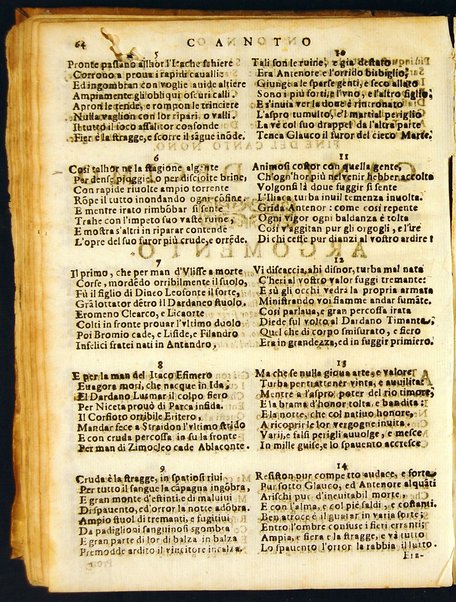 64 CANTO
5
Pronte passano allhor l'Itache schiere
Corrono a proua i rapidi caualli:
Ed ingombran con voglie auide altiere
Ampiamente gli obliqui oscuri calli.
Apron le gende, e rompon le trinciere
Nulla vaglion lor ripari, o valli.
In tutto il loco assalitor confonde
Fier è la stragge, e scorre il sãgue inõde.
6
Così talhor ne la stagione algente
Per dense pioggi, o per disciolte brine,
Con rapide ruuolte ampio torrente
Rõpe il tutto inondando ogni cõfine;
E mentre irato rimbõbar si sente
Trahe con l'impeto suo vaste ruine,
E mostra s'altri in riparar contende
L'opre del suo furor più crude, orrẽde.
7
Il primo, che per man d'Vlisse a morte
Corse, mordẽdo orribilmente il suolo,
Fù il figlio di Dineo Leofonte il forte,
Grã lottator dẽtro il Dardaneo stuolo,
Eromeno Clearco, e Licaorte
Colti in fronte prouar l'vltimo duolo
Poi Bromio cade, e Liside, e Filandro
Infelici fratei nati in Antandro,
8
E per la man del Itaco Esimero
Euagora mori, che nacque in Ida,
El Dardano Lusmar il colpo fiero
Per Niceta prouò di Parca infida.
Il Corsioto orribile Eitero,
Mandar fece a Straidon l'vltimo strido
E con cruda percossa in su la fronte
Per man di Zimocleo cade Ablaconte.
9
Cruda è la stragge, in spatiosi riui
Per tutto il sangue la càpagna ingõbra,
E gran monte d'estinti, e di maluiui
Di spauento, ed'orror la notte adõbra.
Ampio stuol di tremanti, e fugitiui
Da padiglioni sanguinosi sgombra
E gran parte di lor di balza in balza
Premodde ardito il vincitore incalza.
10
Tali son le ruine, e già destato
Era Antenore e l'orrido bisbiglio,
Giunge a le sparse genti, e seco allato
Sono i più forti, e l'vno, e l'altro figlio;
E s'inuia ver la doue è rintronato
L'aspro tumulto, e'l martial periglio
La ve col suo drappel da l'altra parte
Tenea Glauco il furor del cieco Marte.
11
Animosi costor con quella gente,
Ch'ogn'hor più ne venir hebber accolta
Volgonsi là doue faggir si sente
L'Iliaca turba inuil temenza inuolta.
Grida Antenor: come così repente
Ogni vigor ogni baldanza è tolta
Così s'aggitan pur gli orgogli, e l'ire
Di chi cesse pur dianzi al vostro ardire!
12
Vi discaccia, ahi disnor, turba mal nata
C'heri al vostro valor fuggì tremante:
E sù gli occhi vedrà la propria armata
Ministrando voi fiamme andar fumãte.
Così parlaua, e gran percossa irata
Diede sul volto al Dardano Timanta,
Quel che di corpo smisurato, e fiero
Era in grandezza, ed in fuggir primiero.
13
Ma che se nulla gioua arte, e valore
Turba per tratte ner vinta, e auuilita!
Mentre a l'aspro poter del rio timore,
E la brama d'honor tolta, e bandita
E la notte, che col natiuo honore,
A ricoprir le lor vergogne inuita.
Varii, e falsi perigli auuolge, e mesce
In mille guise, e lo spauento accresce
14
Resiston pur competto audace, e forte
Pur sotto Glauco, ed Antenore alquãti
Arischi pur d'ineuitabil morte,
E con l'alma, e col piè saldi, e costanti.
Ben atroce è il guarar in varia sorte;
Entro l'ombre confuse i fieri erranti
Ampia, e fiera e la stragge, e và tutto
Lo spauento l'orror la rabbia il lutto.
Fia-